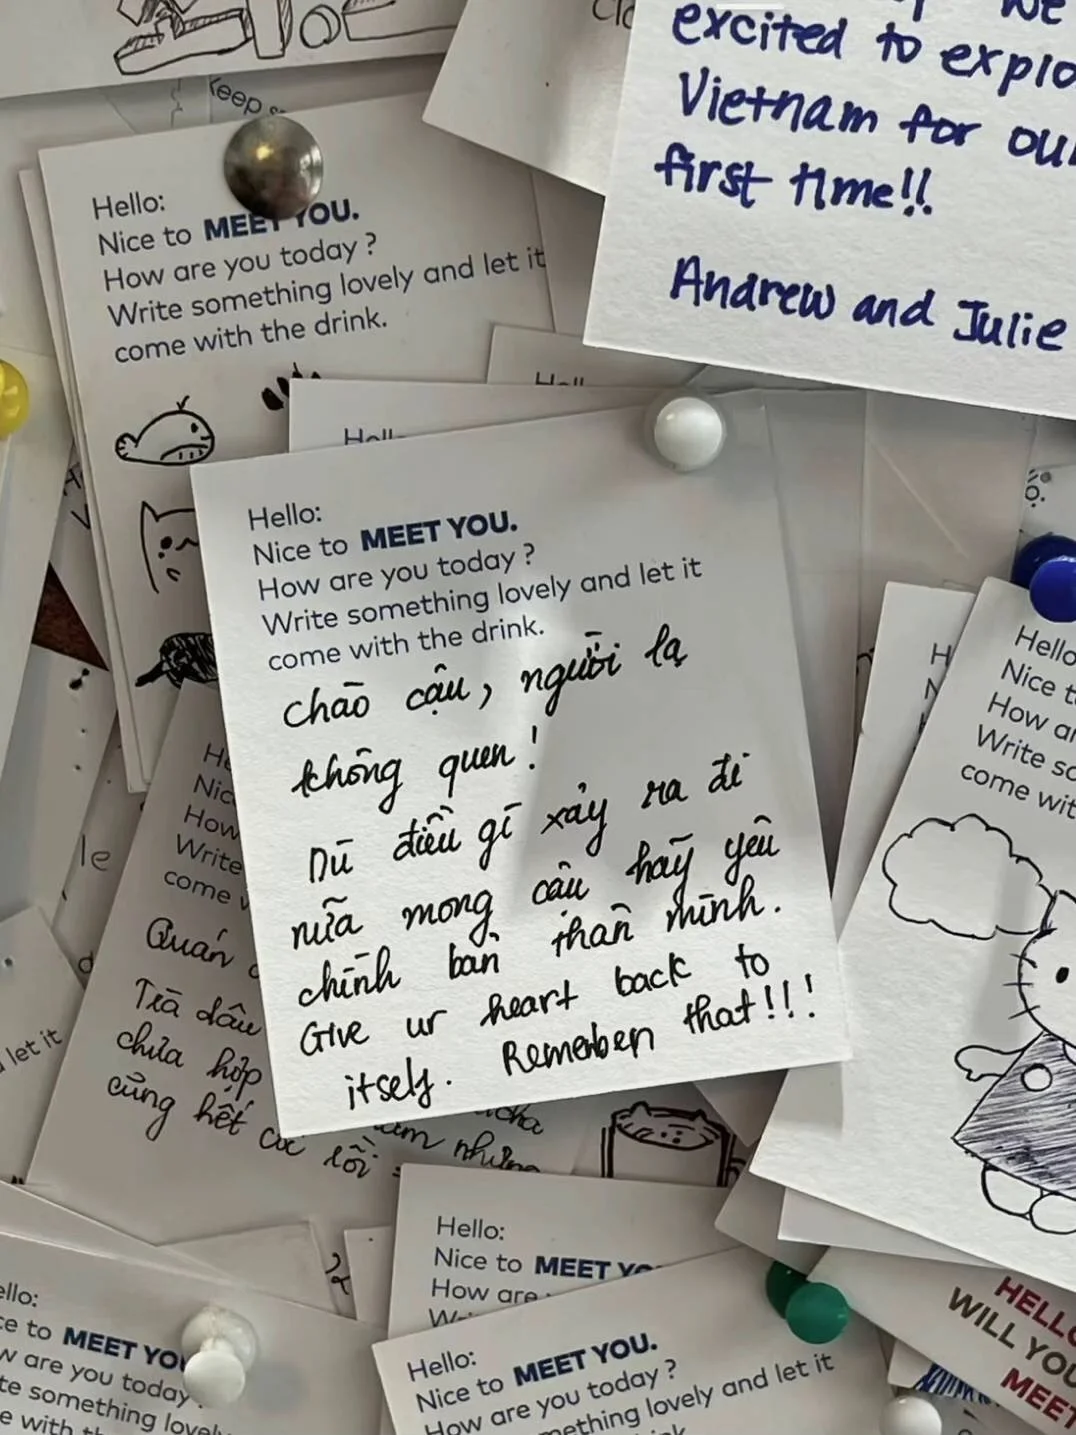 keep
we
excited to explo
Vietnam for our
first time!!
Andrew and Julie
Hello:
Nice to MEET YOU.
How are you today ?
Write something lovely and let it
come with the drink.
Hell
Hell
Hello:
Nice to MEET YOU.
How are you today ?
Write something lovely and let it
come with the drink.
chào cậu, người lạ
không quen !
Dù điều gì xảy ra đi
nữa mong cậu hãy yêu
chính bản thân mình.
Give ur heart back to
itself. Remember that!!!
He
Nic
How
Write
come w
Quán
Trà dâu
chưa hợp
cũng hết
rồi
những
le
let it
H
N
H
Hello
Nice t
How ar
Write so
come wit
Hello:
Nice to MEET YO
How are
Hello:
Nice to MEET YOU.
How are you today ?
mething lovely and let it
ello:
ce to MEET YOU
w are you today
te something lovel
e with th
HELLO
WILL YOU
MEET